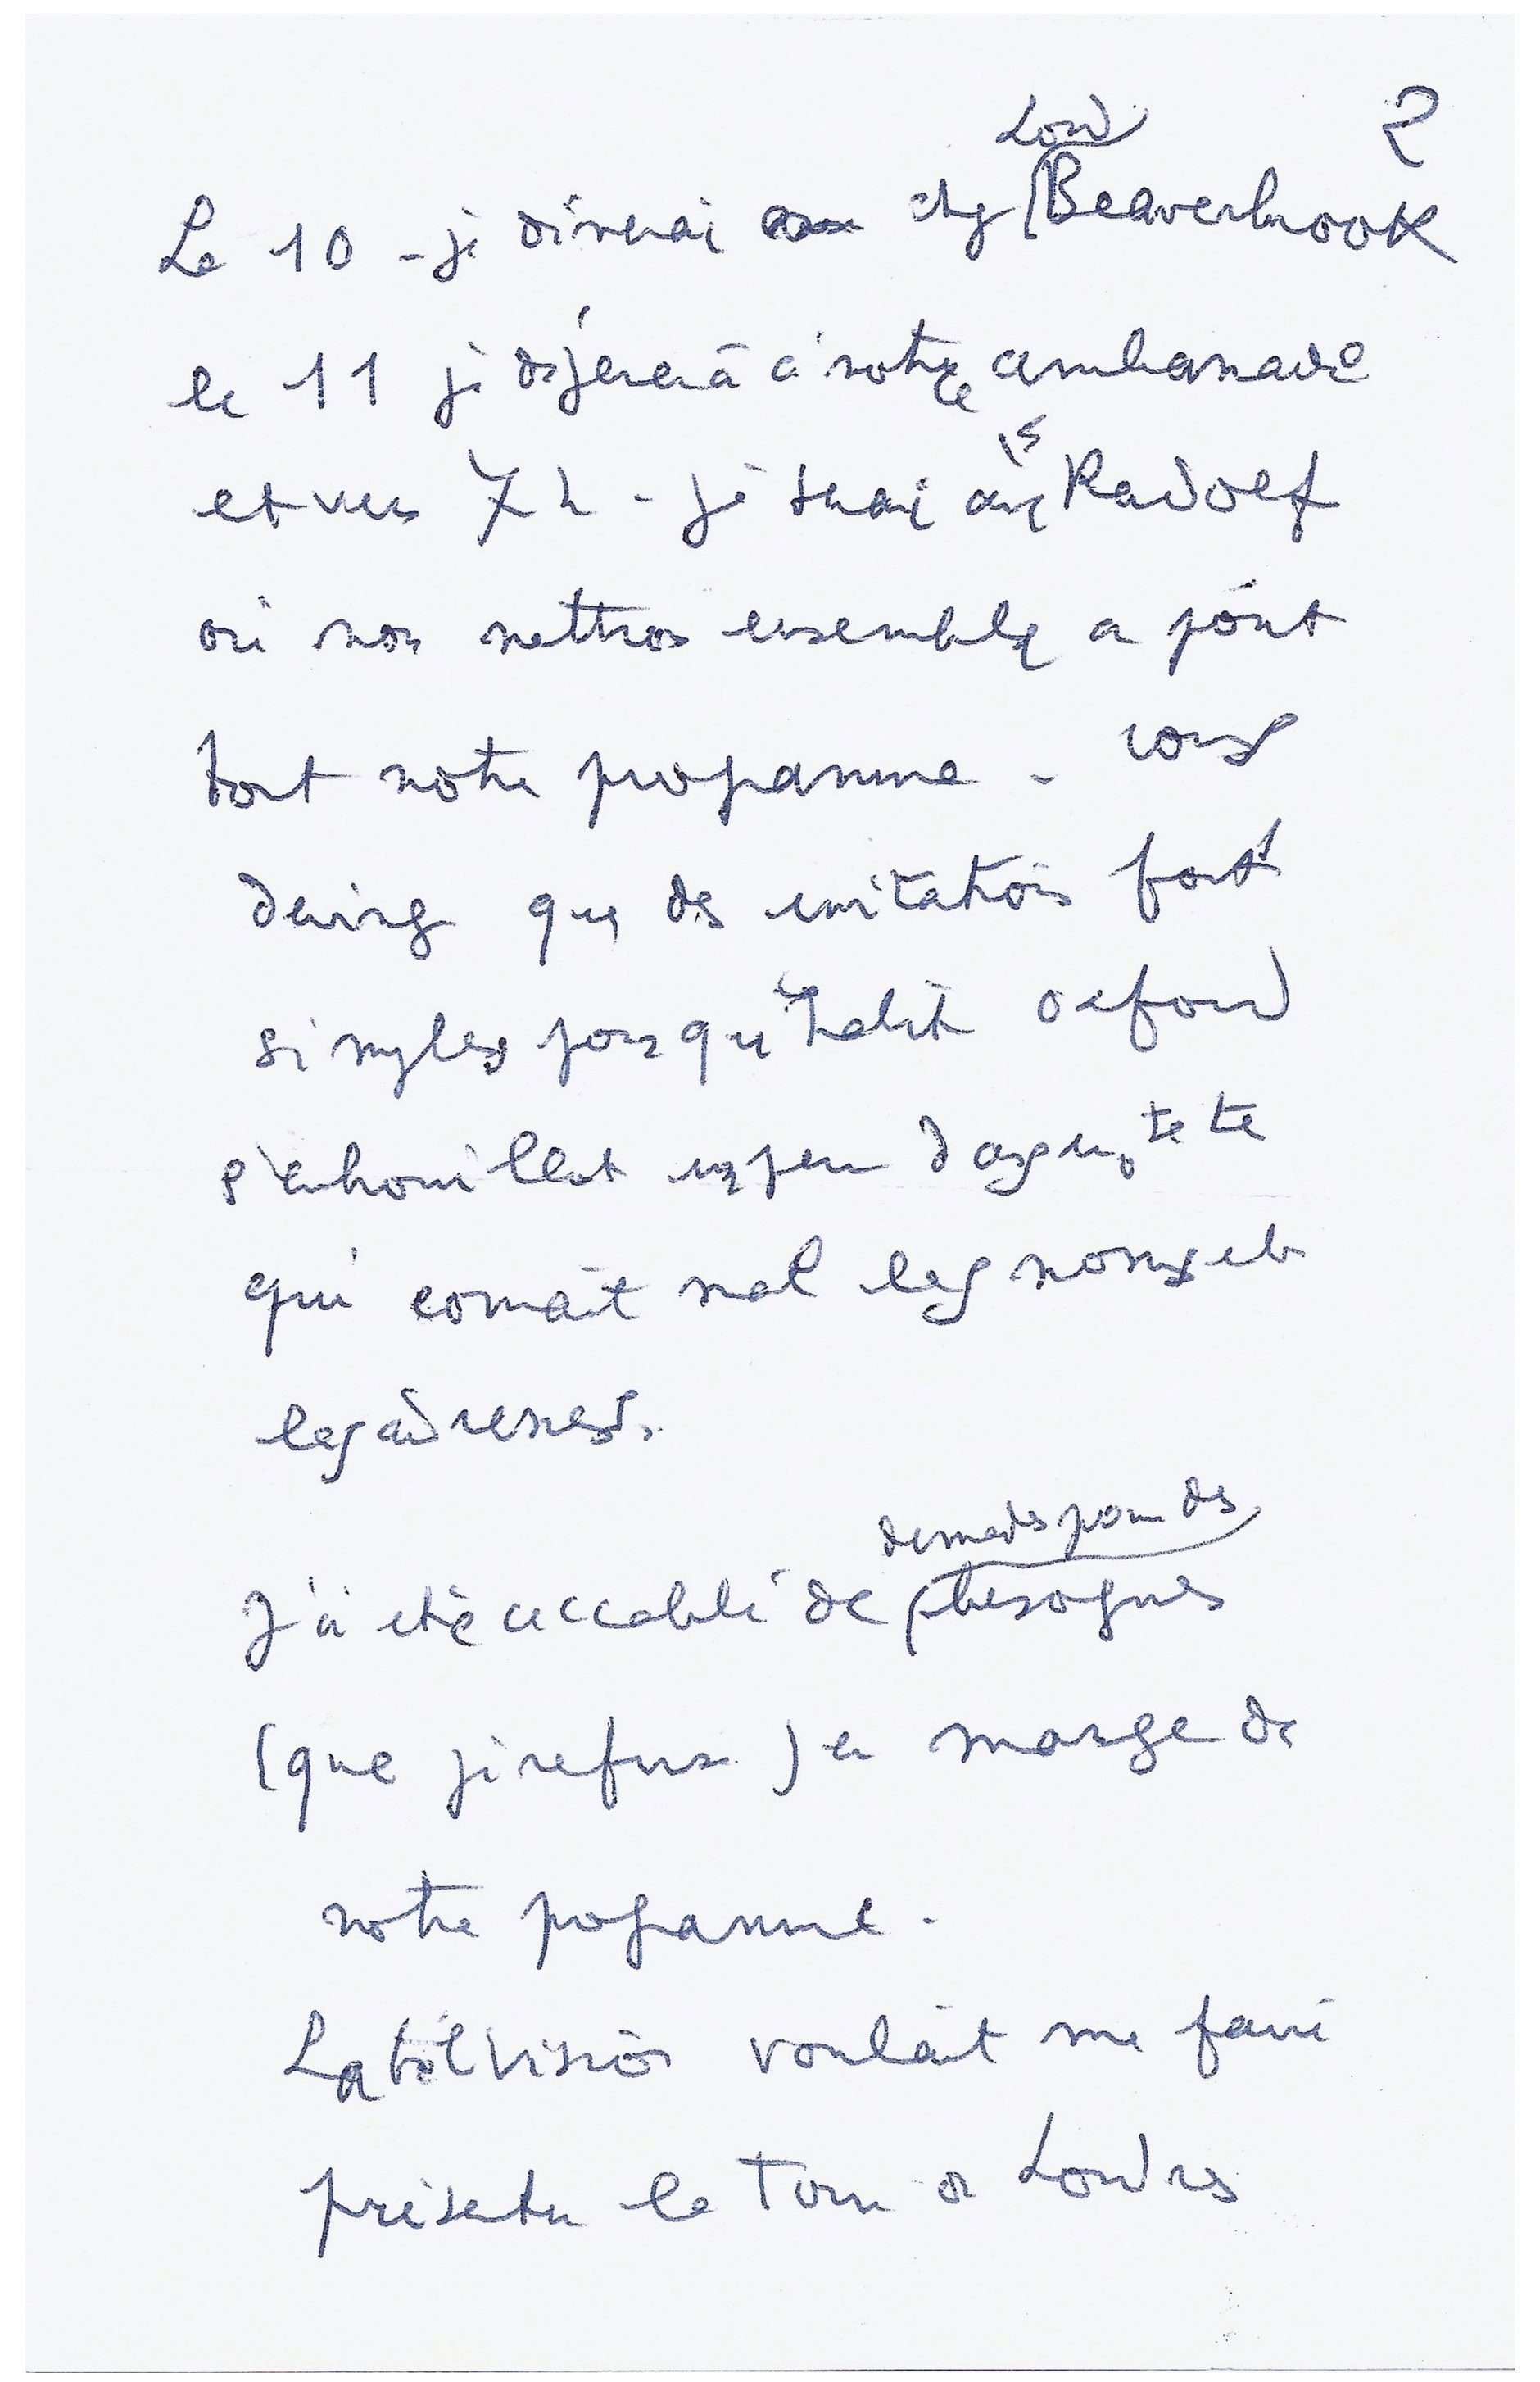 2
Lord
Le 10 - je dînerai chez Beaverbrook
le 11 je déjeunerai à notre ambassade
et vers 7 h - je serai au Radolf
où nous mettrons ensemble a point
tout notre programme - vous
devinez que des invitations sont
simples pour qui habite Oxford
s'embrouillent un peu dans une tete
qui connait mal les noms et
les adresses.
demandes pour des
J'ai été accablé de besognes
(que je refuse) en marge de
notre programme -
La télévision voulait me faire
présenter la Tour de Londres